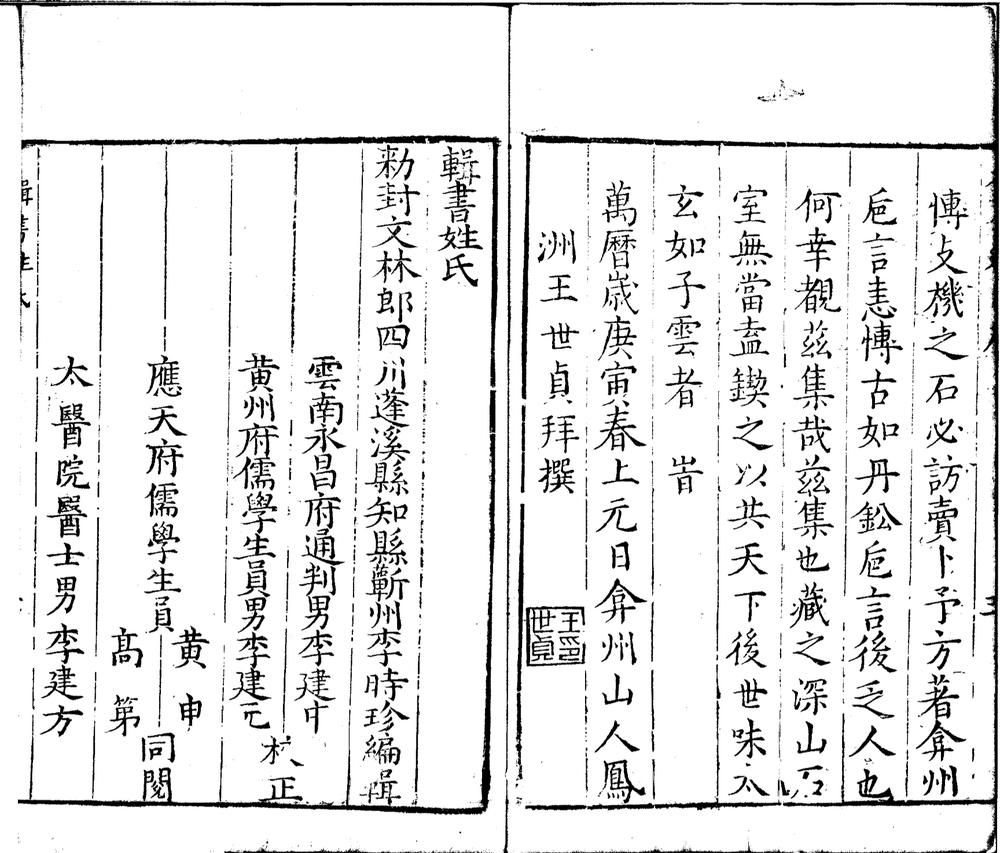 愽攴機之石必訪賣卜予方著弇州
巵言恚愽古如丹鈆巵言後乏人也
何幸覩茲集哉茲集也藏之深山石
室無當盍鍥之以共天下後世味太
玄如子雲者 旹
萬曆歲庚寅春上元日弇州山人鳳
洲王世貞拜撰
輯書姓氏
勑封文林郎四川蓬溪縣知縣蘄州李時珍編輯
雲南永昌府通判男李建中
黄州府儒學生員男李建元
校正
應天府儒學生員
黄申
高第
同閱
太醫院醫士男李建方
輯書姓氏